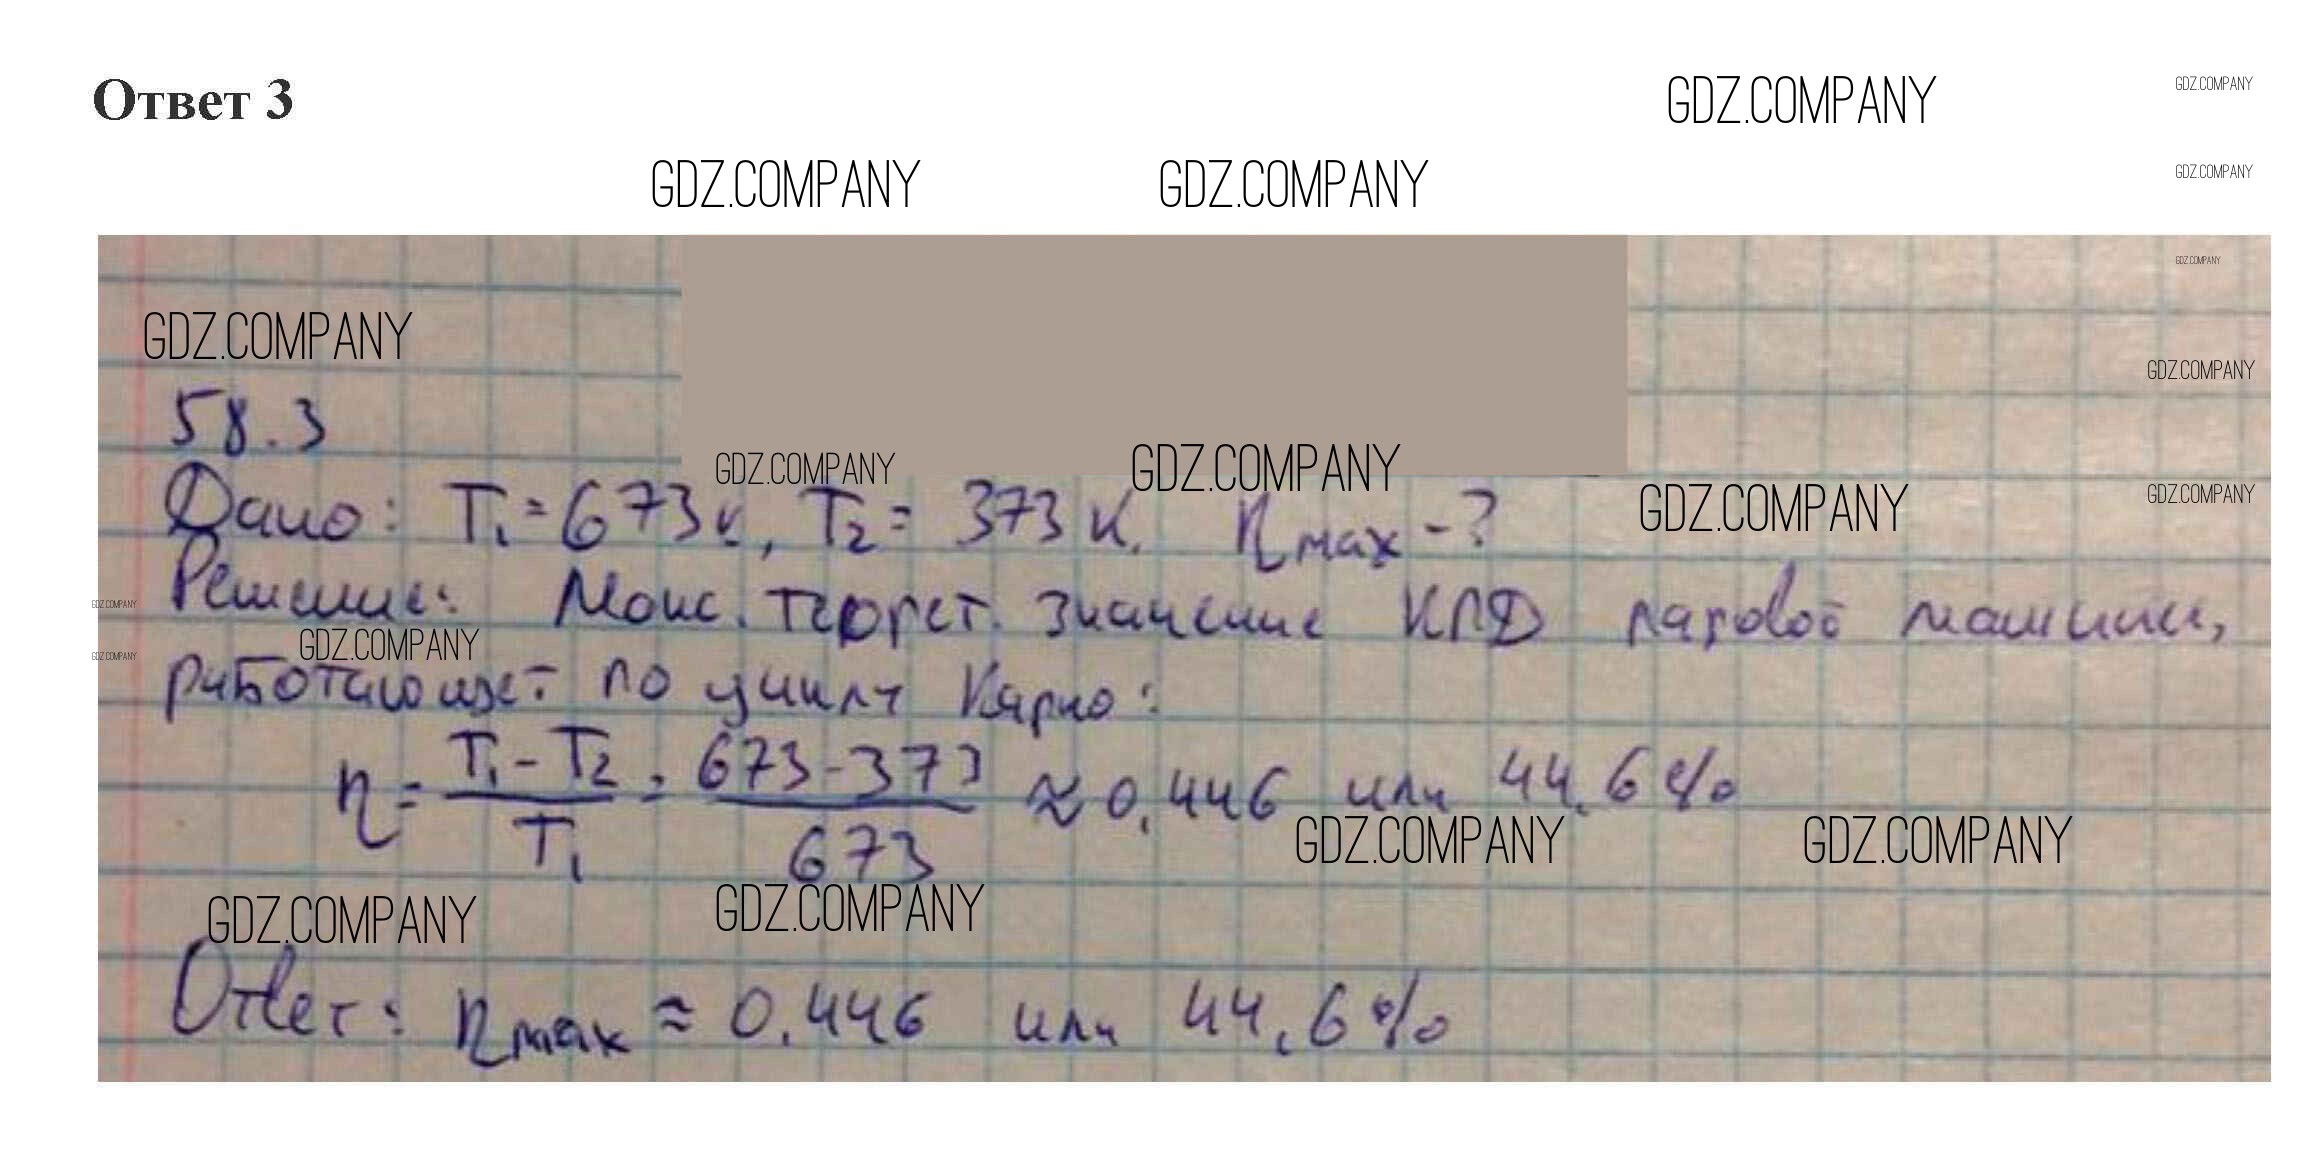 Ответ 3
GDZ.COMPANY
GDZ.COMPANY
GDZ.COMPANY
GDZ.COMPANY
GDZ.COMPANY
GDZ.COMPANY
GDZ.COMPANY
GDZ.COMPANY
58.3
GDZ.COMPANY
GDZ.COMPANY
GDZ.COMPANY
GDZ.COMPANY
Дано: T₁ = 673 К, T₂ = 373 К. ηmax - ?
Решение: Макс. теорет. значение КПД паровой машины,
GDZ.COMPANY
GDZ.COMPANY
GDZ.COMPANY
работающей по циклу Карно:
η = (T₁ - T₂)/T₁ = (673 - 373)/673 ≈ 0,446 или 44,6%
GDZ.COMPANY
GDZ.COMPANY
GDZ.COMPANY
GDZ.COMPANY
Ответ: ηmax ≈ 0,446 или 44,6%